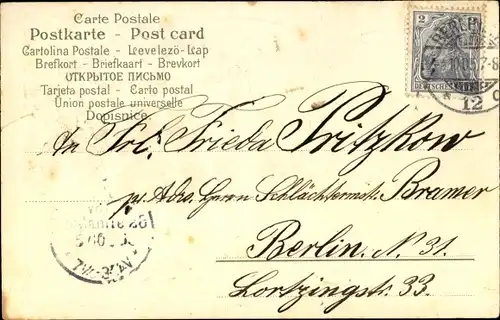 Carte Postale
Postkarte - Post card
Cartolina Postale - Levelezö-Lap
Brefkort - Briefkaart - Brevkort
ОТКРЫТОЕ ПИСЬМО
Tarjeta postal - Carto postal
Union postale universelle
Dopisnice.
2
BERLIN
12
An Frl. Frieda Pritzkow
pr. Adr. Herrn Schlächtermstr. Bramer
Berlin. N. 31.
Lortzingstr. 33.